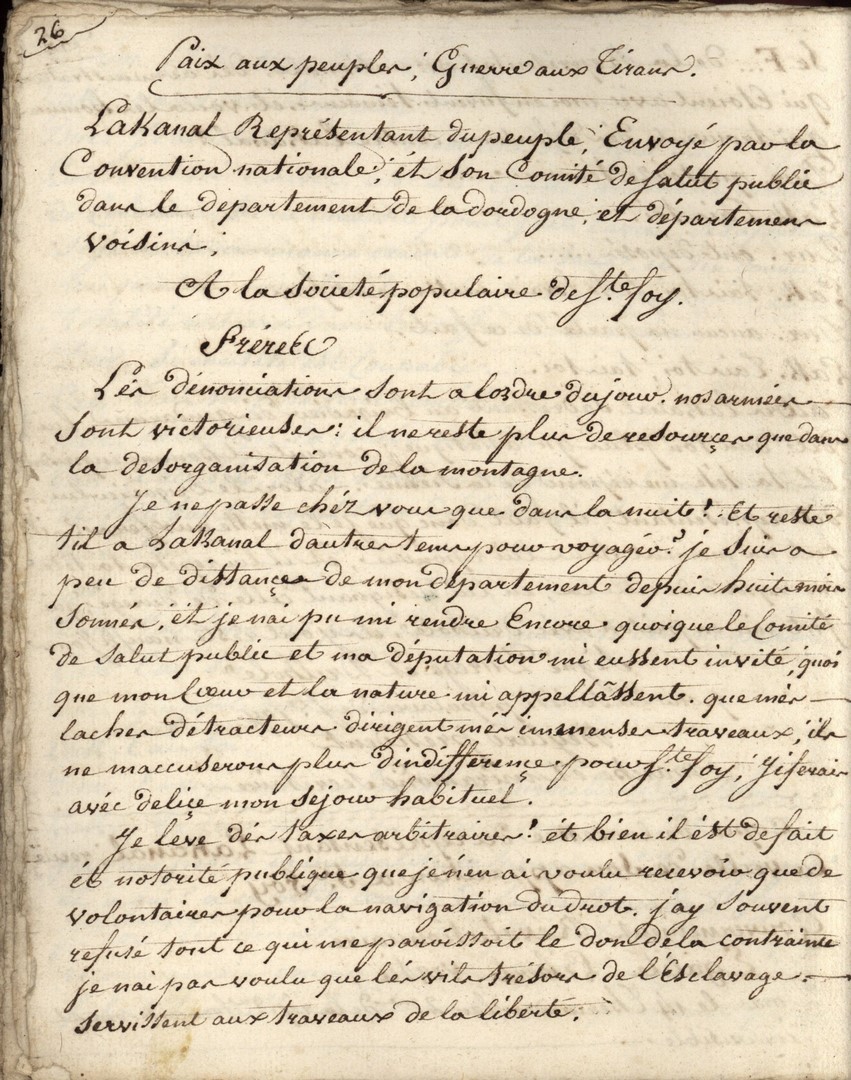 26
Paix aux peuples; Guerre aux Tirans.
LaKanal Représentant du peuple, Envoyé par la
Convention nationale, ét son Comité de salut public
dans le departement de la dordogne, et départemens
voisins,
A la société populaire de Ste. foy.
Fréres
Lés dénonciations sont a lordre du jour. nos armées
sont victorieuses: il ne reste plus de resources que dans
la desorganisation de la montagne.
Je ne passe chéz vous que dans la nuit! Et reste
til a LaKanal dautres tems pour voyager? je suis a
peu de distance de mon département depuis huit mois
sonnés, ét je nai pu mi rendre Encore quoique le Comité
de salut public et ma députation mi eussent invité, quoi
que mon Cœur et la nature mi appellâssent. que més
laches détracteurs dirigent més immenses traveaux, ils
ne maccuserons plus dindifference pour Ste. foy, jiferais
avéc delice mon séjour habituel.
Je léve dés taxes arbitraires! ét bien il ést de fait
ét notorité publique que je n'en ai voulu recevoir que de
volontaires pour la navigation du drot. j'ay souvent
refusé tout ce qui me paroissoit le don de la contrainte
je nai pas voulu que lés vils trésors de l'Esclavage
servissent aux traveaux de la liberté.